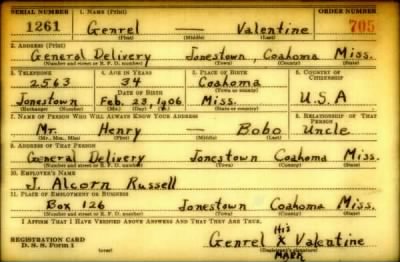 SERIAL NUMBER 1. NAME (Print) ORDER NUMBER
1261 Genrel — Valentine 705
(First) (Middle) (Last)
2. ADDRESS (Print)
General Delivery Jonestown, Coahoma Miss.
(Number and street or R. F. D. number) (Town) (County) (State)
3. TELEPHONE 4. AGE IN YEARS 5. PLACE OF BIRTH 6. COUNTRY OF CITIZENSHIP
2563 34 Coahoma
(Town or county)
DATE OF BIRTH
Jonestown Feb. 23, 1906 Miss. U.S.A
(Exchange) (Number) (Mo.) (Day) (Yr.) (State or country)
7. NAME OF PERSON WHO WILL ALWAYS KNOW YOUR ADDRESS 8. RELATIONSHIP OF THAT PERSON
Mr. Henry — Bobo Uncle
(Mr., Mrs., Miss) (First) (Middle) (Last)
9. ADDRESS OF THAT PERSON
General Delivery Jonestown Coahoma Miss.
(Number and street or R. F. D. number) (Town) (County) (State)
10. EMPLOYER'S NAME
J. Alcorn Russell
11. PLACE OF EMPLOYMENT OR BUSINESS
Box 126 Jonestown Coahoma Miss.
(Number and street or R. F. D. number) (Town) (County) (State)
I AFFIRM THAT I HAVE VERIFIED ABOVE ANSWERS AND THAT THEY ARE TRUE.
REGISTRATION CARD His
D. S. S. Form 1 (over) Genrel X Valentine
(Registrant's signature)
MARK